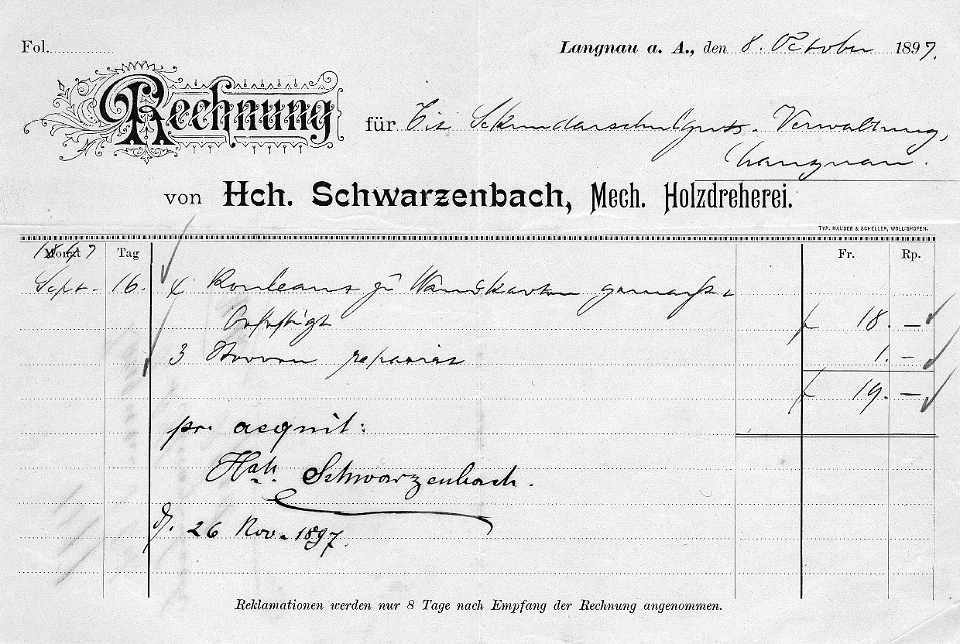 Fol.
Langnau a. A., den 8. October 1897.
Rechnung für Tit. Sekundarschulguts-Verwaltung,
Langnau.
von Hch. Schwarzenbach, Mech. Holzdreherei.
TYP. HAUSER & SCHELLER, WOLLISHOFEN.
Monat Tag Fr. Rp.
1897
Sept. 16. 4 Rouleaus zu Wandkarten gemacht
befestigt f 18. —
3 repariert 1. —
f 19. —
pr. acquit:
Hch. Schwarzenbach.
d. 26 Nov. 1897.
Reklamationen werden nur 8 Tage nach Empfang der Rechnung angenommen.